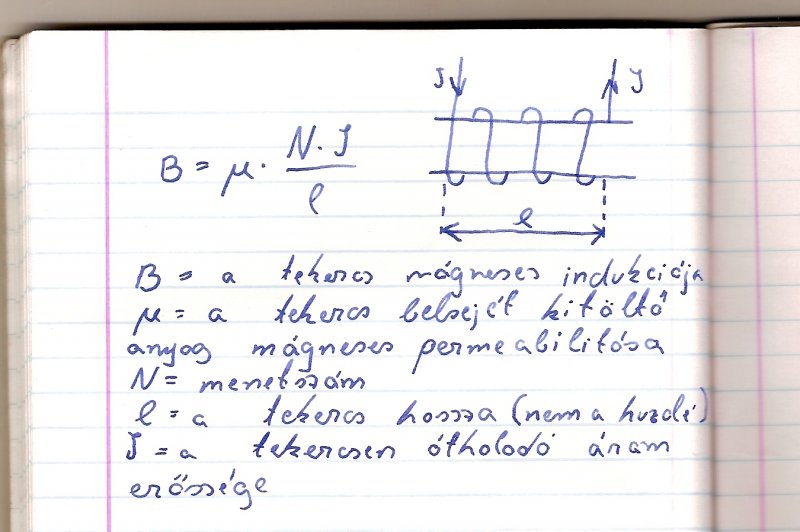 J J
B = μ · N · J / l
l
B = a tekercs mágneses indukciója
μ = a tekercs belsejét kitöltő
anyag mágneses permeabilitása
N = menetszám
l = a tekercs hossza (nem a huzalé)
J = a tekercsen áthaladó áram
erőssége